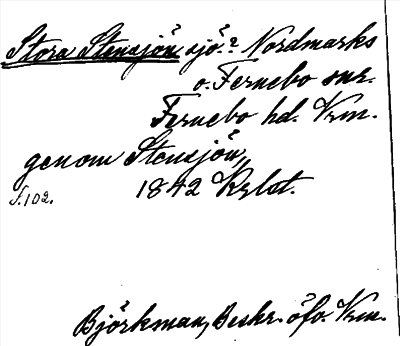 Stora Stensjön sjö? Nordmarks
o. Fernebo snr.
Fernebo hd. Vrm.
genom Stensjön,,
S. 102. 1842 Krlst.
Björkman, Beskr. öfv. Vrm.